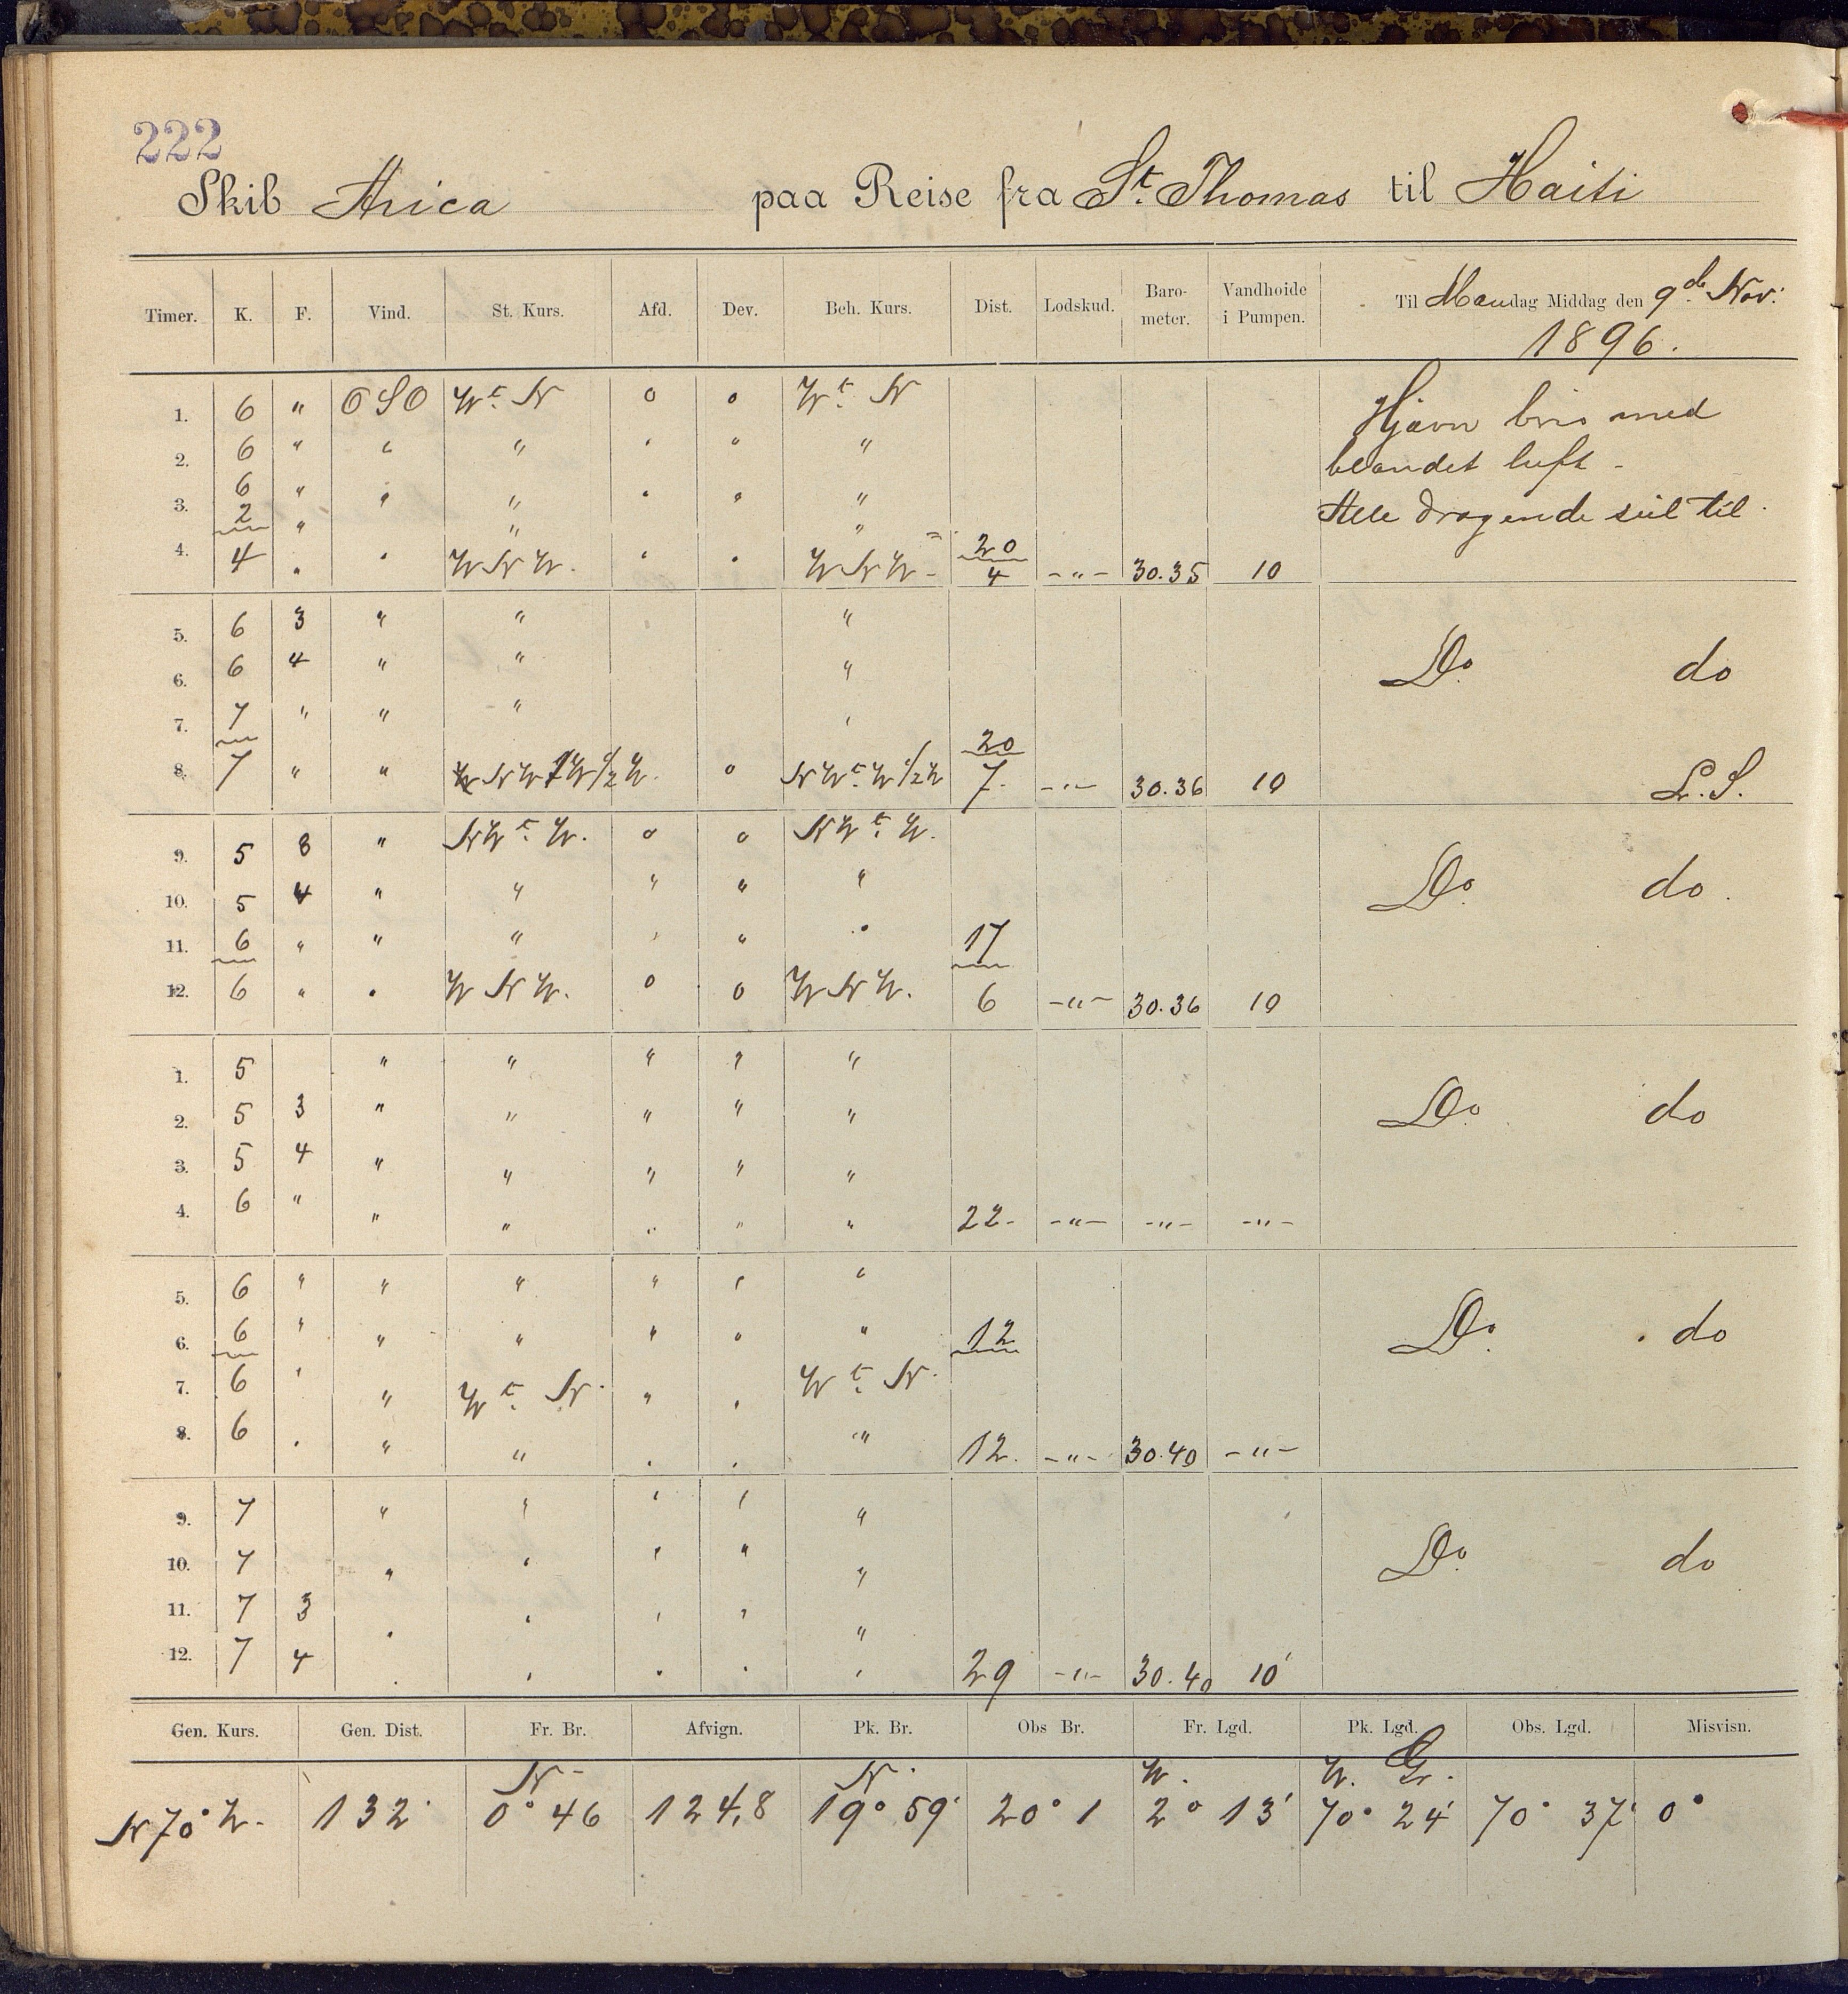 222
Skib Arica paa Reise fra St. Thomas til Haiti
Timer. K. F. Vind. St. Kurs. Afd. Dev. Beh. Kurs. Dist. Lodskud. Baro-meter. Vandhoide i Pumpen. Til Mandag Middag den 9de Nov: 1896.
1. 6 " OSO Wt. N o o Wt. N Hjævn bris med
2. 6 " " " " " " blandet luft -
3. 6 " " " " " " Alle dragende seil til.
2 " " " 20
4. 4 " " WNW. " " WNW - 4 -"- 30.35 10
5. 6 3 " " "
6. 6 4 " " " Do. do
7. 7 " " " " 20
8. 7 " " NWtW 1/2 W. o NWt.W 1/2 W 7. -"- 30.36 10 L.S.
9. 5 8 " NWt.W. o o NWt.W.
10. 5 4 " " " " " Do. do.
11. 6 " " " " " " 17
12. 6 " " WNW. o o WNW. 6 -"- 30.36 10
1. 5 " " " " "
2. 5 3 " " " " " Do. do
3. 5 4 " " " " "
4. 6 " " " " " " 22- -"- -"- -"-
5. 6 " " " " " "
6. 6 " " " " " " 12 Do. do
7. 6 " " Wt. N. " " Wt. N.
8. 6 " " " " " " 12. -"- 30.40 -"-
9. 7 " " " " "
10. 7 " " " " " Do. do
11. 7 3 " " " " "
12. 7 4 " " " " " 29 -"- 30.40 10
Gen. Kurs. Gen. Dist. Fr. Br. Afvign. Pk. Br. Obs Br. Fr. Lgd. Pk. Lgd. Obs. Lgd. Misvisn.
N - N. W. W. Gr.
N 70° W. 132 0° 46 124,8 19° 59' 20° 1 2° 13' 70° 24' 70° 37' 0°